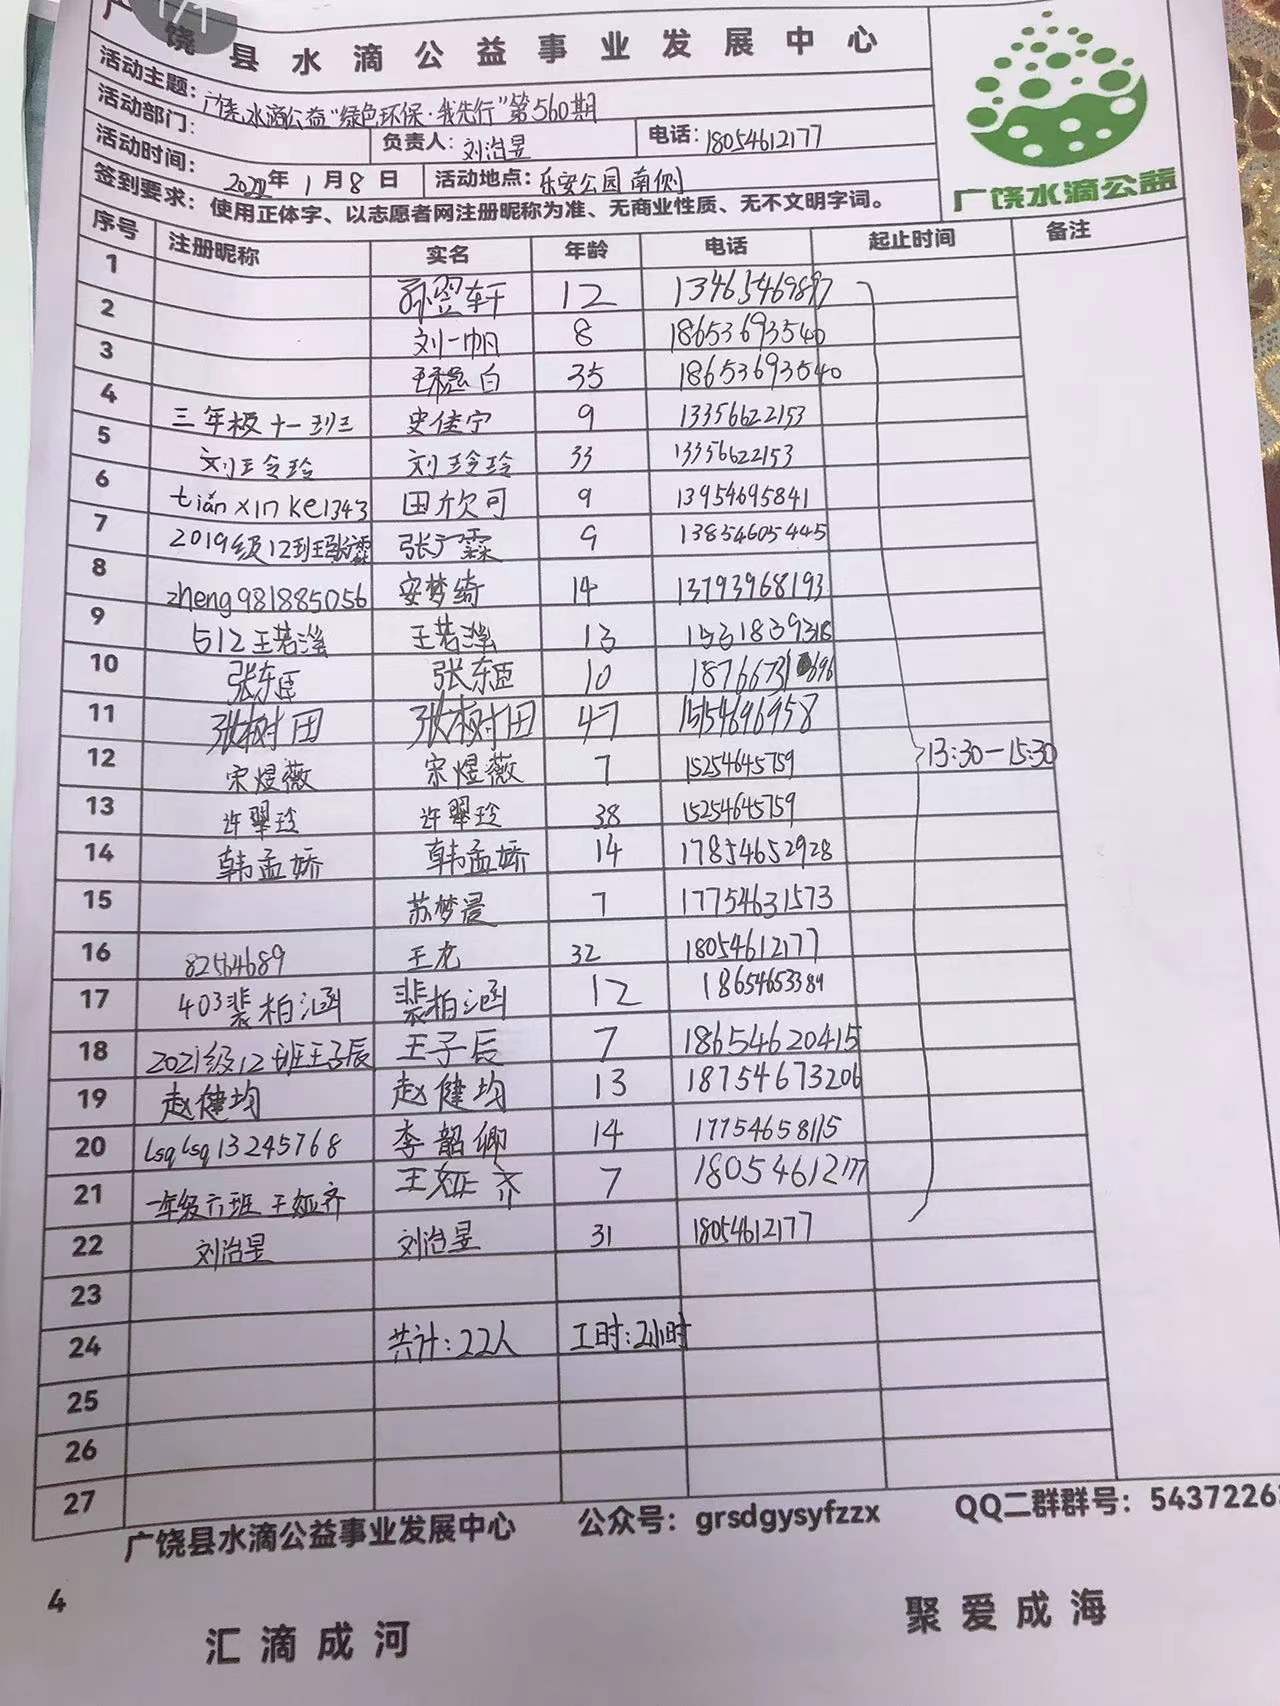 1/1
广饶县水滴公益事业发展中心
活动主题：广饶水滴公益"绿色环保·我先行"第560期
活动部门： 负责人：刘治昱 电话：18054612177
活动时间： 年1月8日 活动地点：乐安公园南侧
签到要求：使用正体字、以志愿者网注册昵称为准、无商业性质、无不文明字词。
广饶水滴公益
序号 注册昵称 实名 年龄 电话 起止时间 备注
1 孙翌轩 12 13465469897
2 刘一帆 8 18653693540
3 白 35 18653693540
4 三年级十一班 史佳宁 9 13356622153
5 刘玲玲 刘玲玲 33 13356622153
6 tianxinke1343 田欣可 9 13954695841
7 2019级12班张广霖 张广霖 9 13854605445
8 zheng981885056 安梦绮 14 13793968193
9 512王若滢 王若滢 13 15318393
10 张东臣 张东臣 10
11 张树田 张树田 47 15154696958
12 宋煜薇 宋煜薇 7 15254645759
13:30-15:30
13 许翠玲 许翠玲 38 15254645759
14 韩孟娇 韩孟娇 14 17854652928
15 苏梦晨 7 17754631573
16 82564689 王龙 32 18054612177
17 403裴柏涵 裴柏涵 12 18654653389
18 2021级12班王子辰 王子辰 7 18654620415
19 赵健均 赵健均 13 18754673206
20 lsqlsq13245768 李韶卿 14 17754658115
21 一年级六班王娅齐 王娅齐 7 18054612177
22 刘治昱 刘治昱 31 18054612177
23
24 共计：22人 工时：2小时
25
26
27
广饶县水滴公益事业发展中心 公众号：grsdgysyfzzx QQ二群群号：5437226
4
汇滴成河 聚爱成海